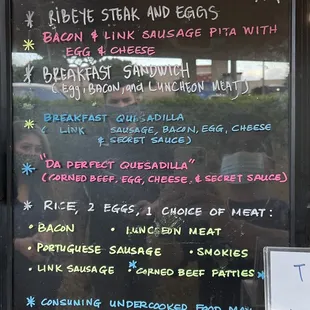 * RIBEYE STEAK AND EGGS
* BACON & LINK SAUSAGE PITA WITH
EGG & CHEESE
* BREAKFAST SANDWICH
(Egg, BACON, and LUNCHEON MEAT)
* BREAKFAST QUESADILLA
( LINK SAUSAGE, BACON, EGG, CHEESE
& SECRET SAUCE)
* "DA PERFECT QUESADILLA"
(CORNED BEEF, EGG, CHEESE, & SECRET SAUCE)
* RICE, 2 EGGS, 1 CHOICE OF MEAT:
• BACON • LUNCHEON MEAT
• PORTUGUESE SAUSAGE • SMOKIES
• LINK SAUSAGE *CORNED BEEF PATTIES*
* CONSUMING UNDERCOOKED FOOD MAY
T